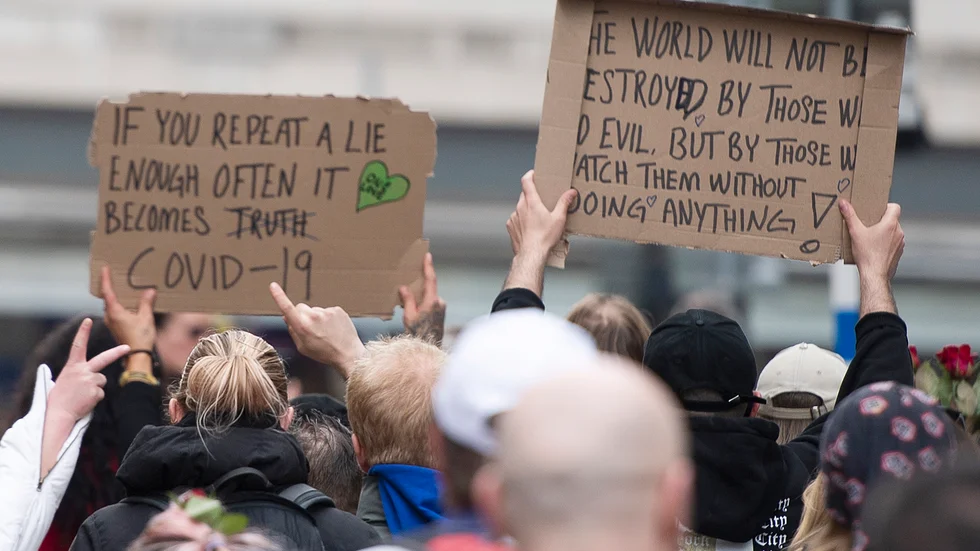 IF YOU REPEAT A LIE
ENOUGH OFTEN IT
BECOMES TRUTH
COVID-19
HE WORLD WILL NOT B
ESTROYD BY THOSE W
D EVIL, BUT BY THOSE W
ATCH THEM WITHOUT
DOING ANYTHING!
City
City